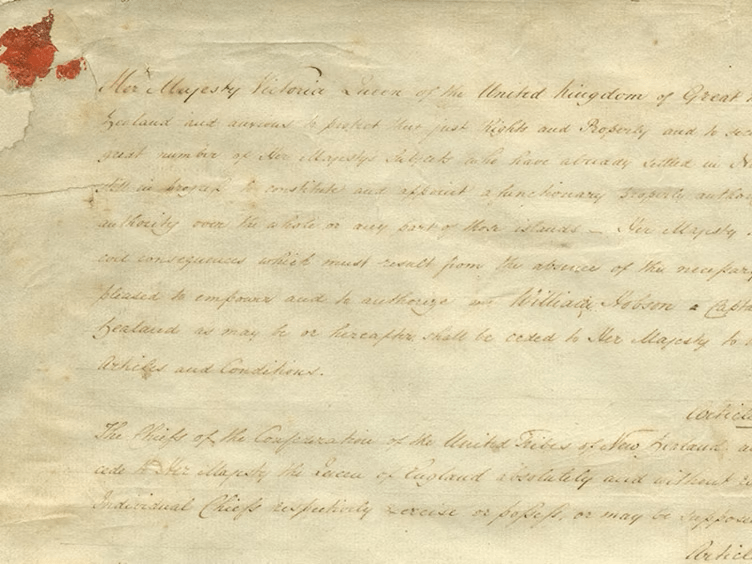 Her Majesty Victoria Queen of the United Kingdom of Great
Zealand and anxious to protect their just Rights and Property and to
great number of Her Majestys Subjects who have already settled in
still in progress to constitute and appoint a functionary properly
authority over the whole or any part of those islands – Her Majesty
evil consequences which must result from the absence of the necessary
pleased to empower and to authorize me William Hobson a Captain
Zealand as may be or hereafter shall be ceded to Her Majesty to
Articles and Conditions.
Article
The Chiefs of the Confederation of the United Tribes of New Zealand
cede to Her Majesty the Queen of England absolutely and without
Individual Chiefs respectively exercise or possess, or may be supposed
Article